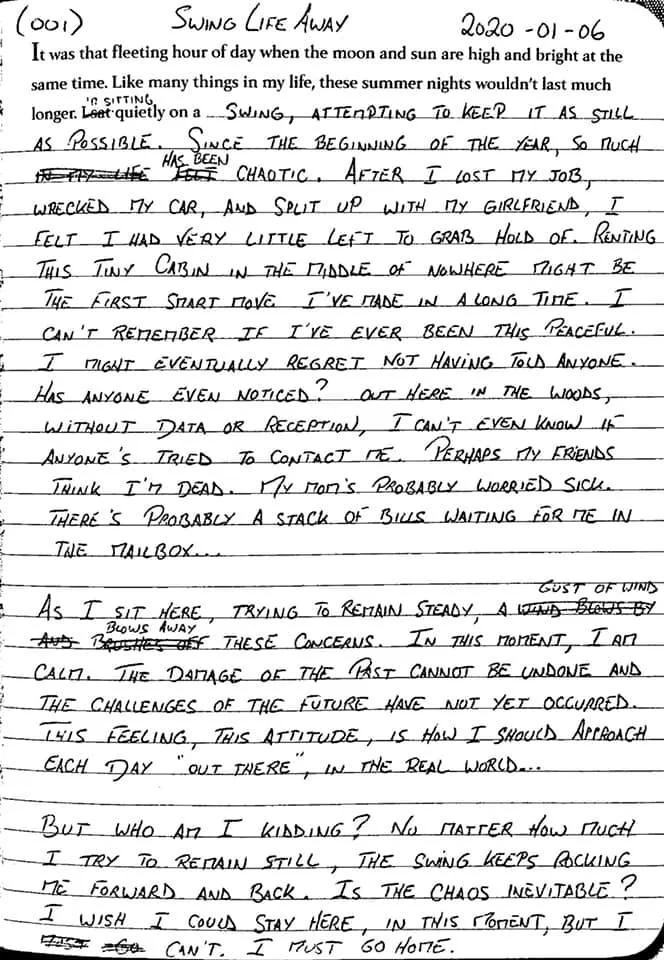 (001) SWING LIFE AWAY 2020-01-06
It was that fleeting hour of day when the moon and sun are high and bright at the
same time. Like many things in my life, these summer nights wouldn't last much
longer. I sat I'M SITTING quietly on a SWING, ATTEMPTING TO KEEP IT AS STILL
AS POSSIBLE. SINCE THE BEGINNING OF THE YEAR, SO MUCH
IN MY LIFE FELT HAS BEEN CHAOTIC. AFTER I LOST MY JOB,
WRECKED MY CAR, AND SPLIT UP WITH MY GIRLFRIEND, I
FELT I HAD VERY LITTLE LEFT TO GRAB HOLD OF. RENTING
THIS TINY CABIN IN THE MIDDLE OF NOWHERE MIGHT BE
THE FIRST SMART MOVE I'VE MADE IN A LONG TIME. I
CAN'T REMEMBER IF I'VE EVER BEEN THIS PEACEFUL.
I MIGHT EVENTUALLY REGRET NOT HAVING TOLD ANYONE.
HAS ANYONE EVEN NOTICED? OUT HERE IN THE WOODS,
WITHOUT DATA OR RECEPTION, I CAN'T EVEN KNOW IF
ANYONE'S TRIED TO CONTACT ME. PERHAPS MY FRIENDS
THINK I'M DEAD. MY MOM'S PROBABLY WORRIED SICK.
THERE'S PROBABLY A STACK OF BILLS WAITING FOR ME IN
THE MAILBOX...
AS I SIT HERE, TRYING TO REMAIN STEADY, A WIND BLOWS BY GUST OF WIND
AND BRUSHES OFF BLOWS AWAY THESE CONCERNS. IN THIS MOMENT, I AM
CALM. THE DAMAGE OF THE PAST CANNOT BE UNDONE AND
THE CHALLENGES OF THE FUTURE HAVE NOT YET OCCURRED.
THIS FEELING, THIS ATTITUDE, IS HOW I SHOULD APPROACH
EACH DAY "OUT THERE", IN THE REAL WORLD...
BUT WHO AM I KIDDING? NO MATTER HOW MUCH
I TRY TO REMAIN STILL, THE SWING KEEPS ROCKING
ME FORWARD AND BACK. IS THE CHAOS INEVITABLE?
I WISH I COULD STAY HERE, IN THIS MOMENT, BUT I
MUST GO CAN'T. I MUST GO HOME.